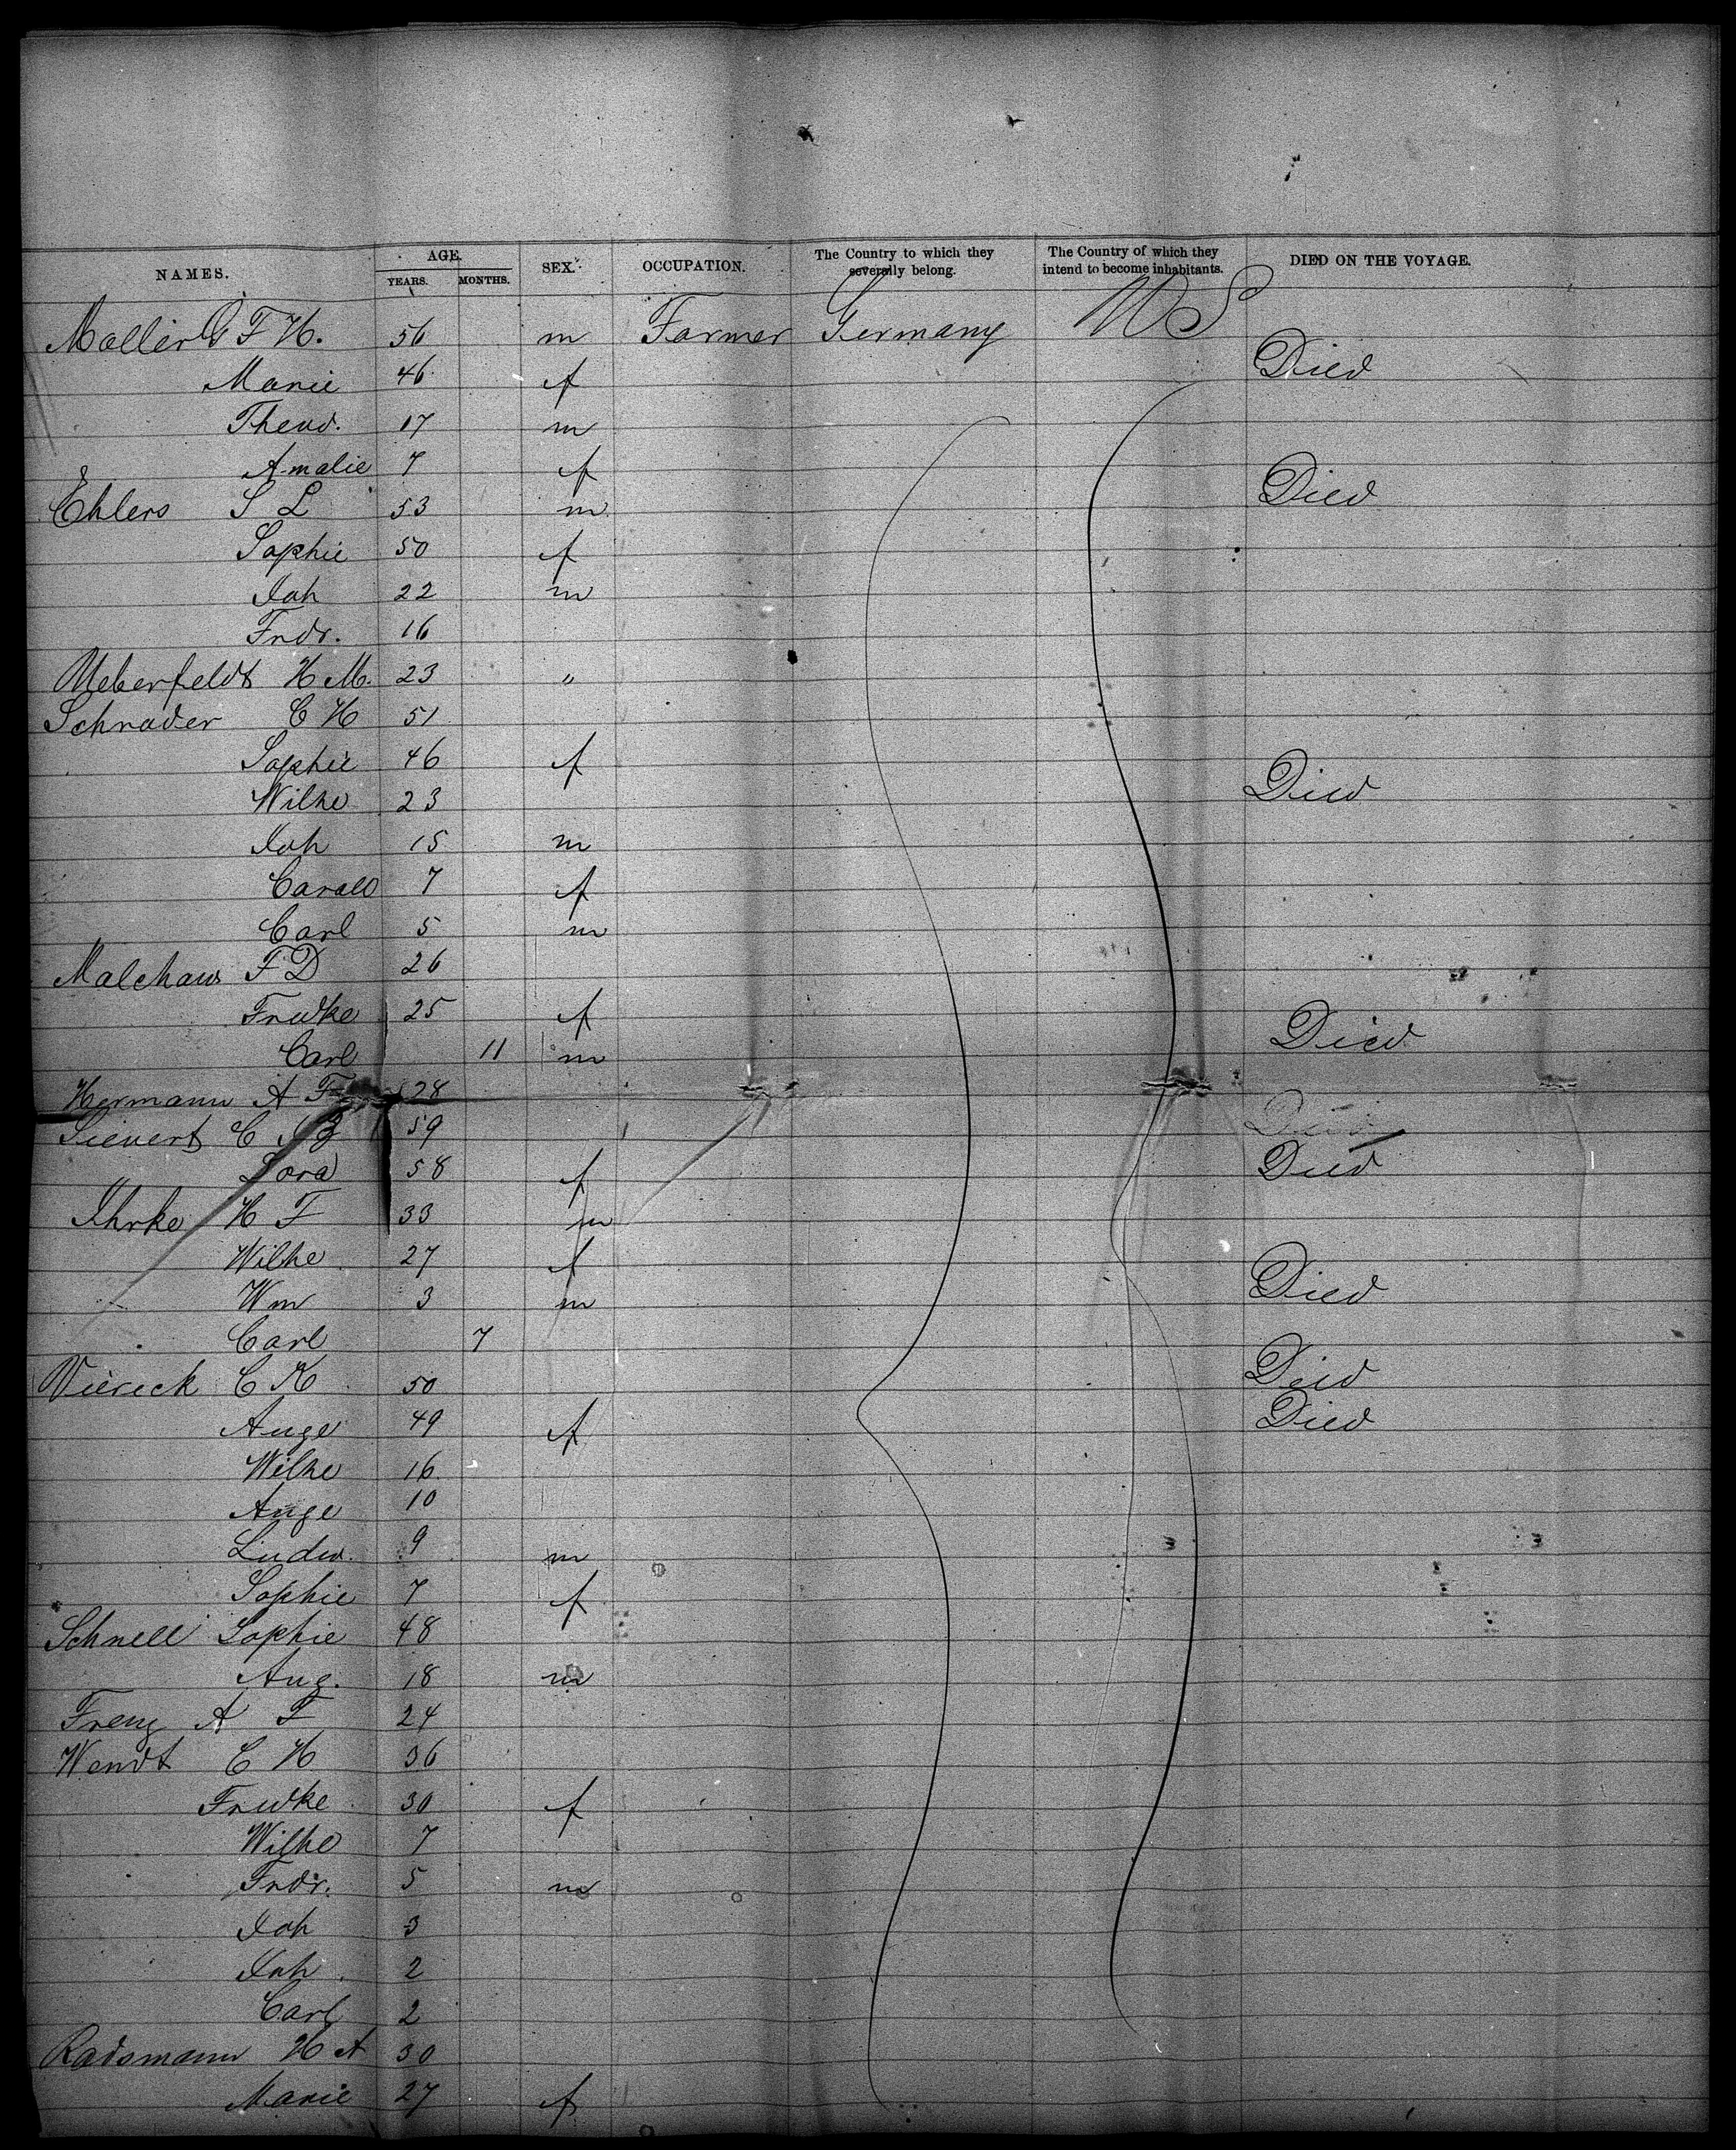 NAMES. AGE. YEARS. MONTHS. SEX. OCCUPATION. The Country to which they severally belong. The Country of which they intend to become inhabitants. DIED ON THE VOYAGE.
Moller G F H. 56 m Farmer Germany US
Marie 46 f Died
Theod. 17 m
Amalie 7 f
Ehlers S L 53 m Died
Sophie 50 f
Joh 22 m
Frdr. 16
Ueberfeldt H M. 23 "
Schrader C H 51
Sophie 46 f
Wilhe 23 Died
Joh 15 m
Carol 7 f
Carl 5 m
Malchaw F D 26
Frdke 25 f
Carl 11 m Died
Hermann A F 28
Sievert C 59 Died
Dora 58 f Died
Ihrke H F 33 m
Wilhe 27 f
Wm 3 m Died
Carl 7
Viereck C K 50 Died
Auge 49 f Died
Wilhe 16
Auge 10
Ludw. 9 m
Sophie 7 f
Schnell Sophie 48
Aug. 18 m
Freng A F 24
Wendt C H 36
Frdke 30 f
Wilhe 7
Frdr. 5 m
Joh 3
Joh 2
Carl 2
Radsmann H A 30
Marie 27 f